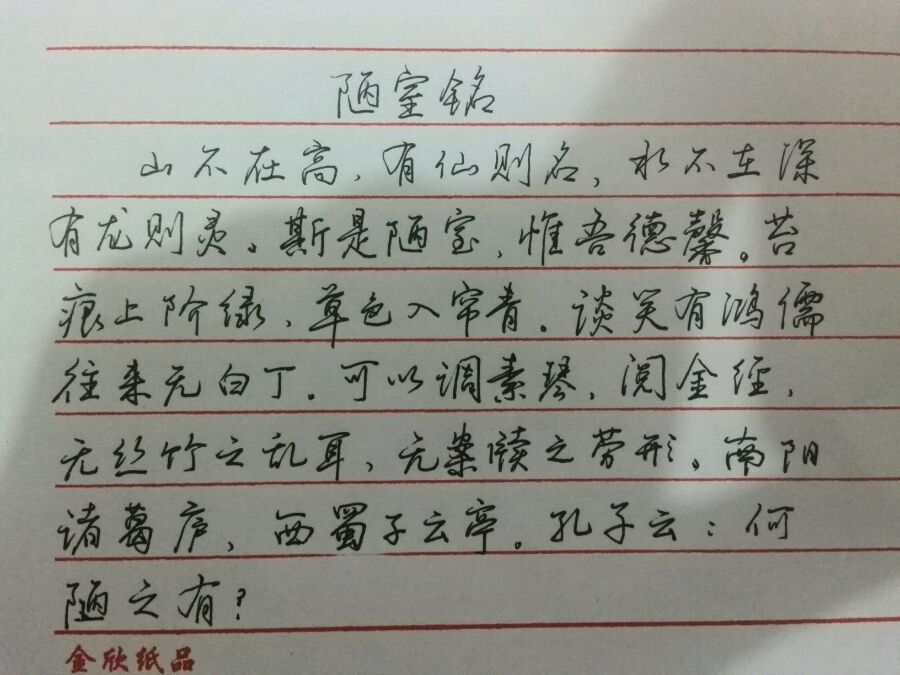 陋室铭
山不在高，有仙则名，水不在深
有龙则灵。斯是陋室，惟吾德馨。苔
痕上阶绿，草色入帘青。谈笑有鸿儒
往来无白丁。可以调素琴，阅金经，
无丝竹之乱耳，无案牍之劳形。南阳
诸葛庐，西蜀子云亭。孔子云：何
陋之有？
金欣纸品